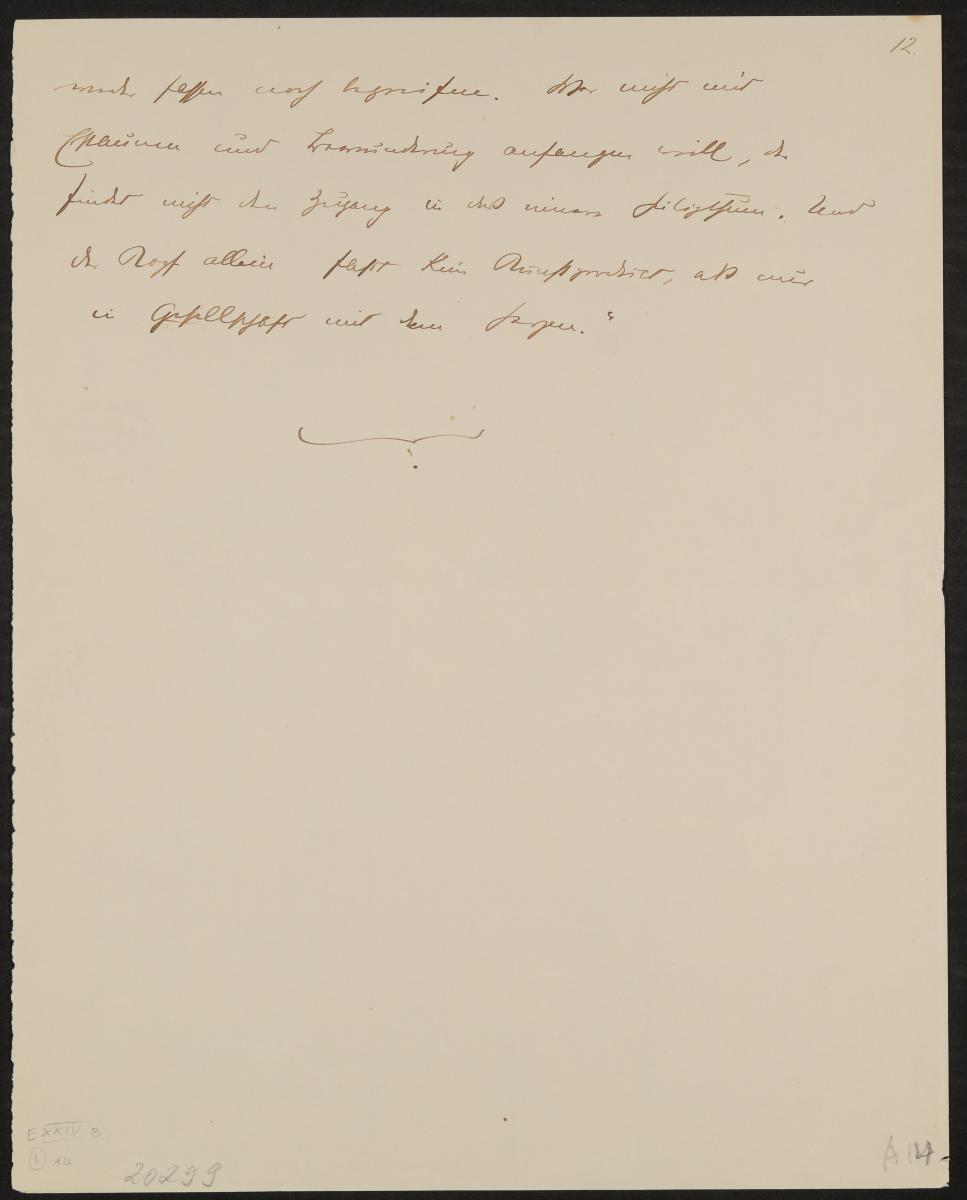 12.
weder fassen noch begreifen. Wer nicht mit
Erstaunen und Bewunderung anfangen will, der
findet nicht den Zugang in das innere Heiligthum. Und
der Kopf allein fasst kein Kunstproduct, als nur
in Gesellschaft mit dem Herzen."
E XXIV B
1 14
20299
A 14